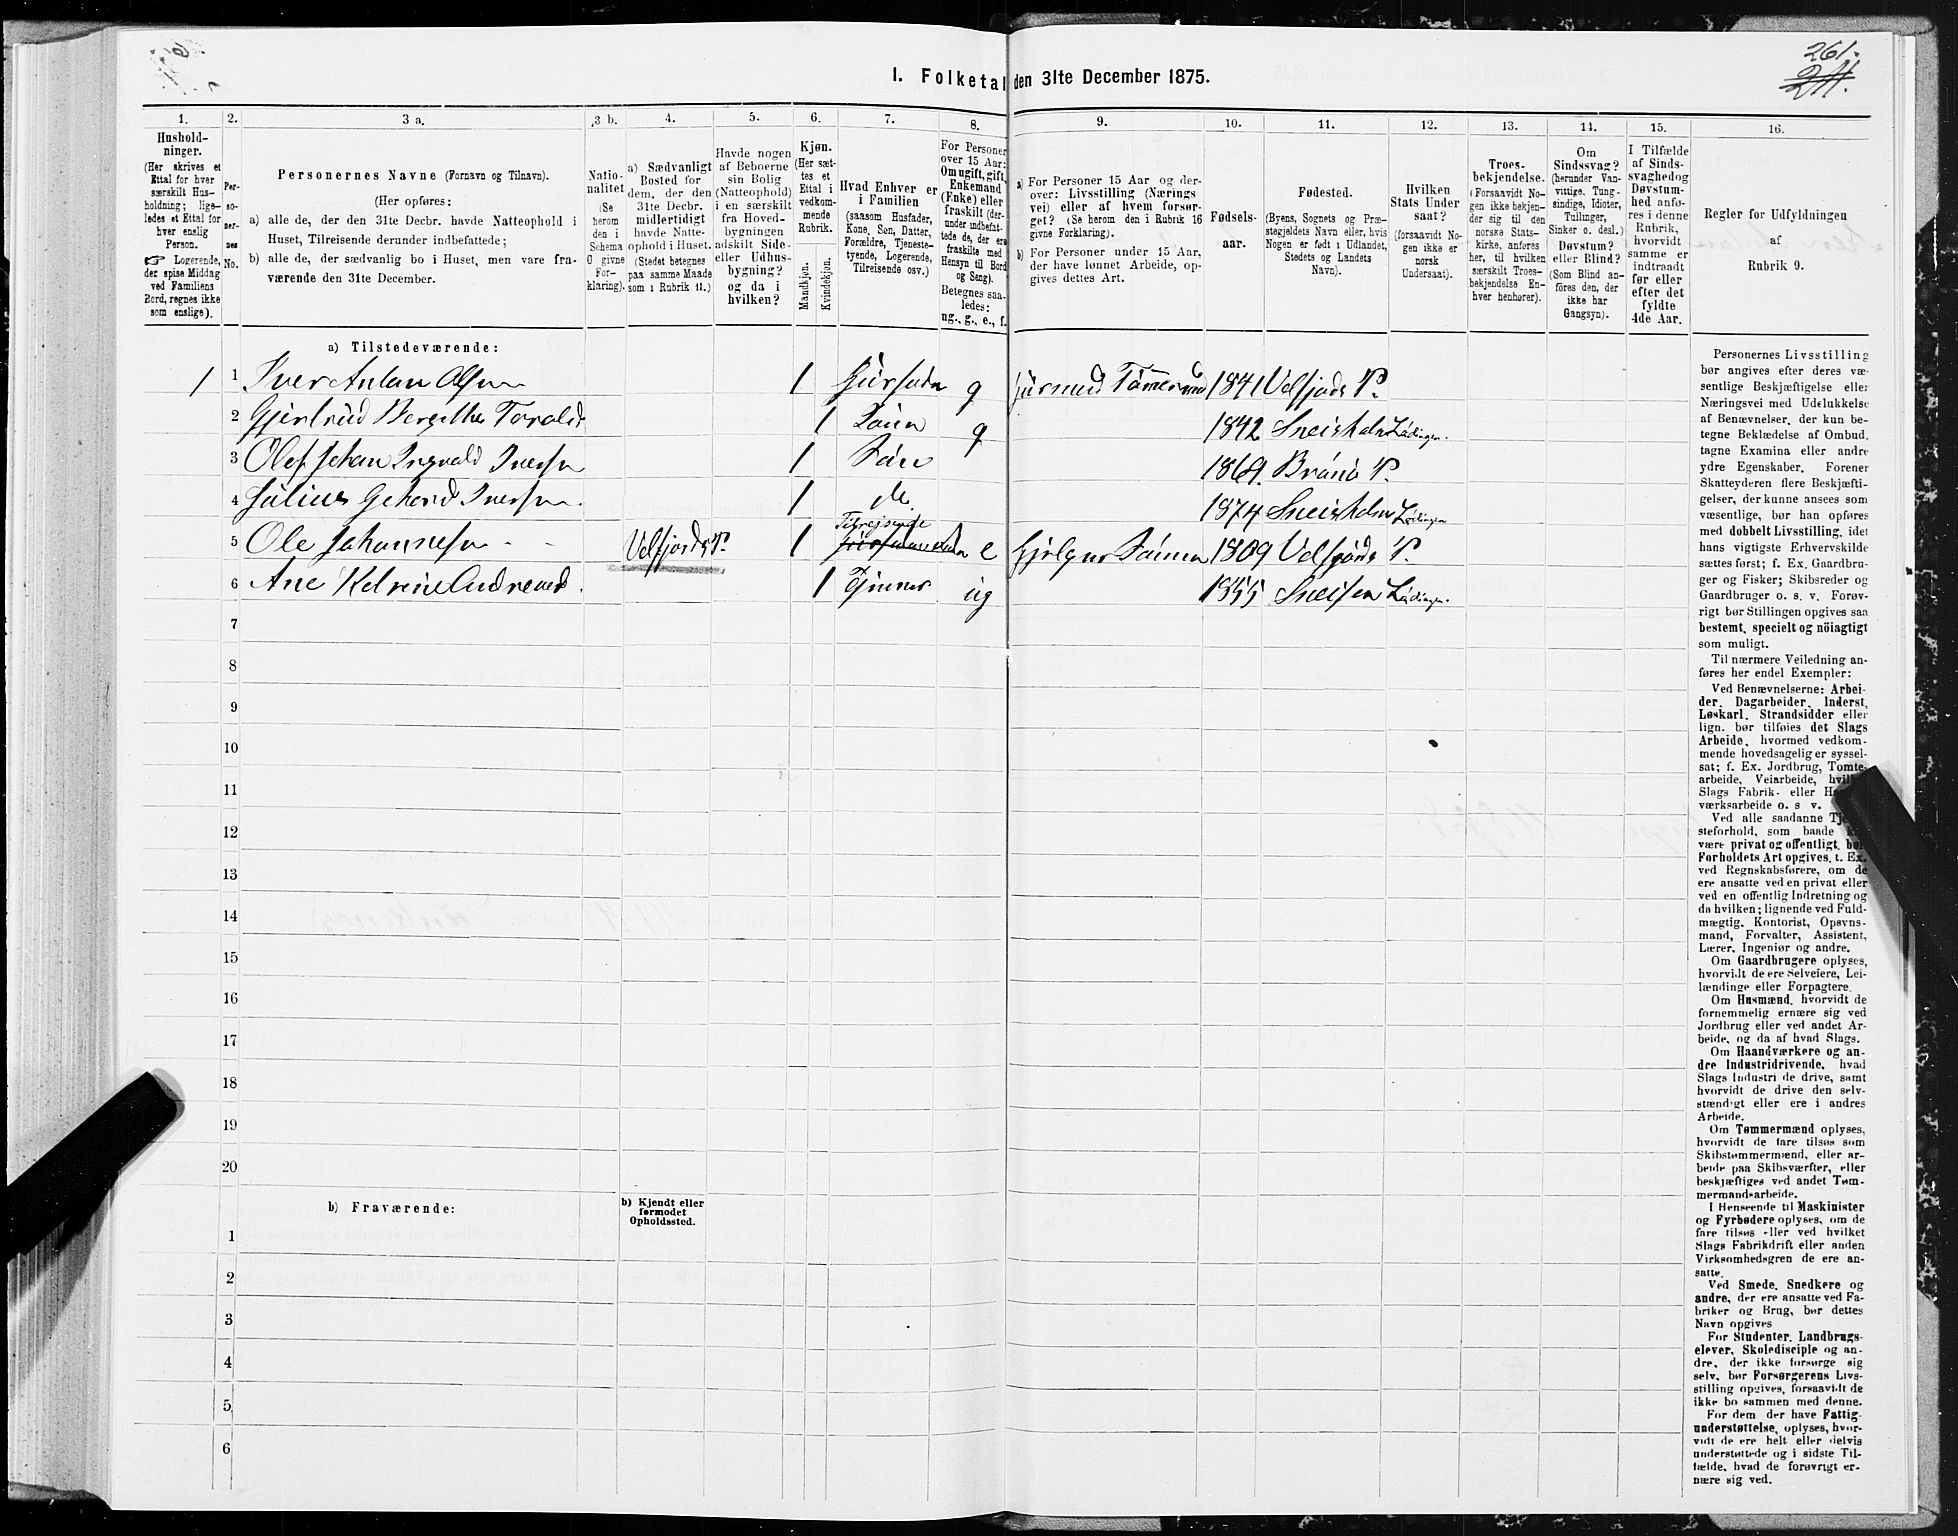 261.
211.
1. Folketal den 31te December 1875.
1. 2. 3 a. 3 b. 4. 5. 6. 7. 8. 9. 10. 11. 12. 13. 14. 15. 16.
Hushold-
ninger.
(Her skrives et
Ettal for hver
særskilt Hus-
holdning; lige-
ledes et Ettal for
hver enslig
Person.
☞ Logerende,
der spise Middag
ved Familiens
Bord, regnes ikke
som enslige).
Per-
so-
ner-
nes
No.
Personernes Navne (Fornavn og Tilnavn).
(Her opføres:
a) alle de, der den 31te Decbr. havde Natteophold i
Huset, Tilreisende derunder indbefattede;
b) alle de, der sædvanlig bo i Huset, men vare fra-
værende den 31te December.
Natio-
nalitet
(Se
herom
den i
Schema
G givne
For-
klaring).
a) Sædvanligt
Bosted for
dem, der den
31te Decbr.
midlertidigt
havde Natte-
ophold i Huset.
(Stedet betegnes
paa samme Maade
som i Rubrik 11.)
Havde nogen
af Beboerne
sin Bolig
(Natteophold)
i en særskilt
fra Hoved-
bygningen
adskilt Side-
eller Udhus-
bygning?
og da i
hvilken?
Kjøn.
(Her sæt-
tes et
Ettal i
vedkom-
mende
Rubrik.
Mandkjøn.
Kvindekjøn.
Hvad Enhver er
i Familien
(saasom Husfader,
Kone, Søn, Datter,
Forældre, Tjeneste-
tyende, Logerende,
Tilreisende osv.)
For Personer
over 15 Aar:
Om ugift, gift,
Enkemand
(Enke) eller
fraskilt (der-
under indbefat-
tede de, der ere
fraskilte med
Hensyn til Bord
og Seng).
Betegnes saa-
ledes:
ug., g., e., f.
a) For Personer 15 Aar og der-
over: Livsstilling (Nærings
vei) eller af hvem forsør-
get? (Se herom den i Rubrik 16
givne Forklaring).
b) For Personer under 15 Aar,
der have lønnet Arbeide, op-
gives dettes Art.
Fødsels-
aar.
Fødested.
(Byens, Sognets og Præ-
stegjeldets Navn eller, hvis
Nogen er født i Udlandet,
Stedets og Landets
Navn).
Hvilken
Stats Under
saat?
(forsaavidt No-
gen ikke er
norsk
Undersaat).
Troes-
bekjendelse.
(Forsaavidt No-
gen ikke bekjen-
der sig til den
norske Stats-
kirke, anføres
her, til hvilken
særskilt Troes-
bekjendelse En-
hver henhører).
Om
Sindssvag?
(herunder Van-
vittige, Tung-
sindige, Idioter,
Tullinger,
Sinker o. desl.)
Døvstum?
eller Blind?
(Som Blind an-
føres den, der
ikke har
Gangsyn).
I Tilfælde
af Sinds-
svaghedog
Døvstum-
hed anfø-
res i denne
Rubrik,
hvorvidt
samme er
indtraadt
før eller
efter det
fyldte
4de Aar.
Regler for Udfyldningen
af
Rubrik 9.
a) Tilstedeværende:
1 1 Iver Anton Olsen 1 Husfader g Husmand Tømmermand 1841 Velfjords P.
2 Gjertrud Bergithe Torolds 1 Kone g 1842 Sneisholm Lødingen.
3 Olaf Johan Ingvald Iversen 1 Søn 1869. Brønø P.
4 Julius Gehard Iversen. 1 do. 1874 Lødingen
5 Ole Johannesen - - Velfjords P. 1 Tilrejsende e 1809 Velfjords P.
6 Ane 1 ug 1855 Lødingen.
7
8
9
10
11
12
13
14
15
16
17
18
19
20
b) Fraværende:
b) Kjendt eller
formodet
Opholdssted.
1
2
3
4
5
6
Personernes Livsstilling
bør angives efter deres væ-
sentlige Beskjæftigelse eller
Næringsvei med Udelukkelse
af Benævnelser, der kun be-
tegne Beklædelse af Ombud,
tagne Examina eller andre
ydre Egenskaber. Forener
Skatteyderen flere Beskjæfti-
gelser, der kunne ansees som
væsentlige, bør han opføres
med dobbelt Livsstilling, idet
hans vigtigste Erhvervskilde
sættes først; f. Ex. Gaardbru-
ger og Fisker; Skibsreder og
Gaardbruger o. s. v. Forøv-
rigt bør Stillingen opgives saa
bestemt, specielt og nöiagtigt
som muligt.
Til nærmere Veiledning an-
føres her endel Exempler:
Ved Benævnelserne: Arbei-
der, Dagarbeider, Inderst,
Løskarl, Strandsidder eller
lign. bør tilføies det Slags
Arbeide, hvormed vedkom-
mende hovedsagelig er syssel-
sat; f. Ex. Jordbrug, Tomte-
arbeide, Veiarbeide,
Slags Fabrik- eller
værksarbeide o. s v.
Ved alle saadanne
steforhold, som baade
være privat og offentligt, bør
Forholdets Art opgives, t. Ex.
ved Regnskabsførere, om de
ere ansatte ved en privat eller
ved en offentlig Indretning og
da hvilken; lignende ved Fuld-
mægtig, Kontorist, Opsyns-
mand, Forvalter, Assistent,
Lærer, Ingeniør og andre.
Om Gaardbrugere oplyses,
hvorvidt de ere Selveiere, Lei-
lændinge eller Forpagtere.
Om Husmænd, hvorvidt de
fornemmelig ernære sig ved
Jordbrug eller ved andet Ar-
beide, og da af hvad Slags.
Om Haandværkere og an-
dre Industridrivende, hvad
Slags Industri de drive, samt
hvorvidt de drive den selv-
stændigt eller ere i andres
Arbeide.
Om Tømmermænd oplyses,
hvorvidt de fare tilsøs som
Skibstømmermænd, eller ar-
beide paa Skibsværfter, eller
beskjæftiges ved andet Tøm-
mermandsarbeide.
I Henseende til Maskinister
og Fyrbødere oplyses, om de
fare tilsøs eller ved hvilket
Slags Fabrikdrift eller anden
Virksomhedsgren de ere an-
satte.
Ved Smede, Snedkere og
andre, der ere ansatte ved Fa-
briker og Brug, bør dettes
Navn opgives
For Studenter, Landbrugs-
elever, Skoledisciple og an-
dre, der ikke forsørge sig
selv, bør Forsørgerens Livs-
stilling opgives, forsaavidt de
ikke bo sammen med denne.
For dem der have Fattig-
understøttelse, oplyses, hvor-
vidt de ere helt eller delvis
understøttede og i sidste Til-
fælde, hvad de forøvrigt er-
nære sig ved.